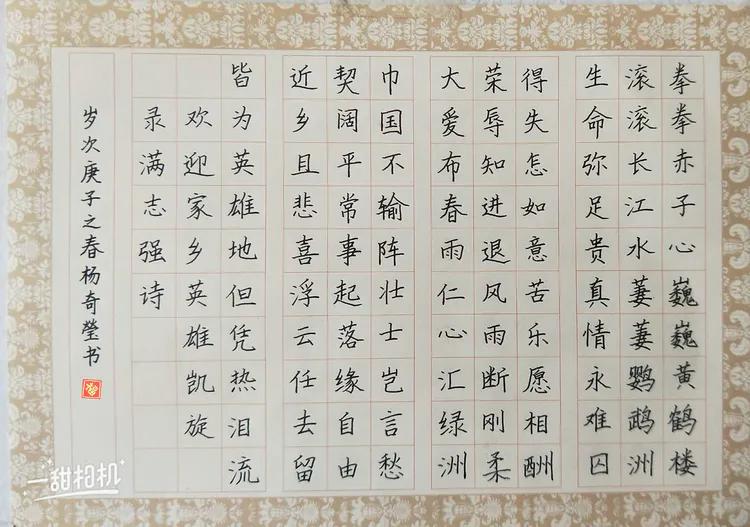 拳拳赤子心巍巍黄鹤楼
滚滚长江水萋萋鹦鹉洲
生命弥足贵真情永难囚
得失怎如意苦乐愿相酬
荣辱知进退风雨断刚柔
大爱布春雨仁心汇绿洲
巾国不输阵壮士岂言愁
契阔平常事起落缘自由
近乡且悲喜浮云任去留
皆为英雄地但凭热泪流
欢迎家乡英雄凯旋
录满志强诗
岁次庚子之春杨奇瑩书
一甜相机